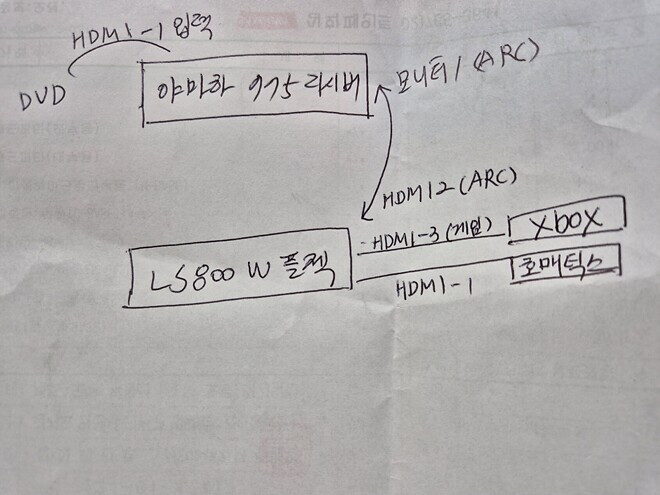 HDMI-1 입력
DVD
야마하 975 리시버
모니터1 (ARC)
HDMI2 (ARC)
HDMI-3 (게임)
Xbox
LS800 W 플젝
HDMI-1
호매틱스